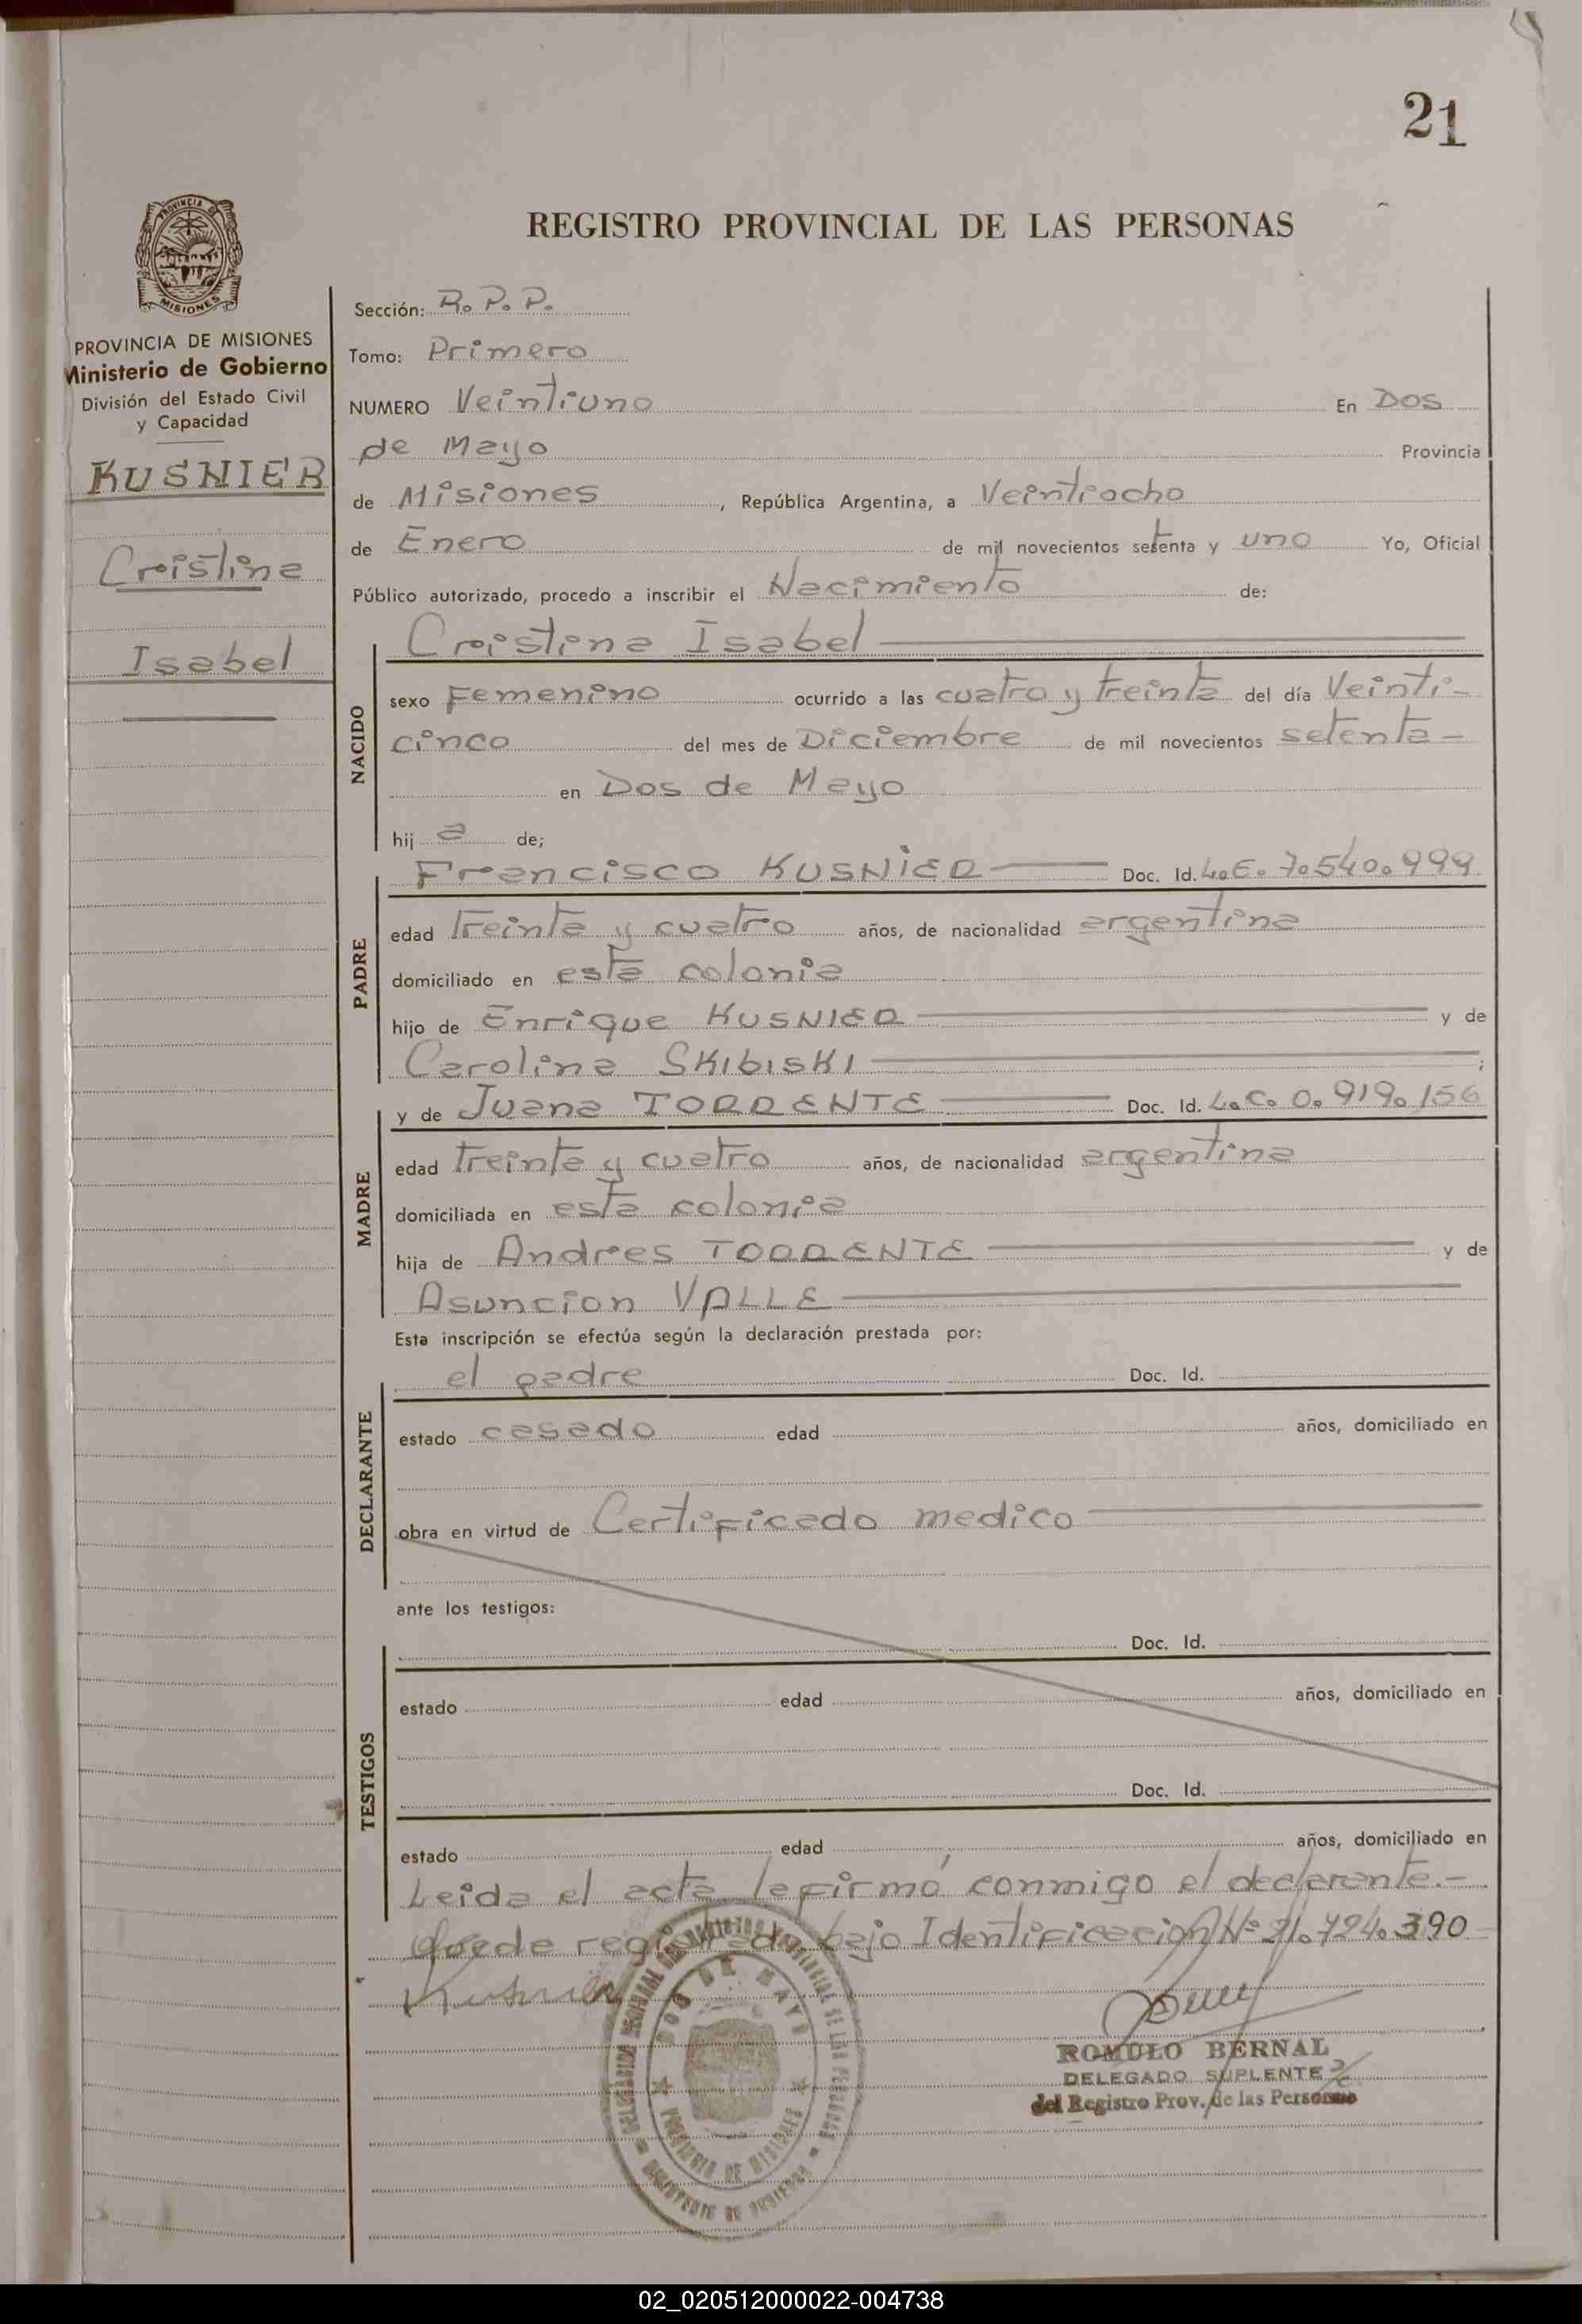 21
PROVINCIA DE
MISIONES
PROVINCIA DE MISIONES
Ministerio de Gobierno
División del Estado Civil
y Capacidad
KUSNIER
Cristina
Isabel
REGISTRO PROVINCIAL DE LAS PERSONAS
Sección: R. P. P.
Tomo: Primero
NUMERO Veintiuno En Dos
de Mayo Provincia
de Misiones, República Argentina, a Veintiocho
de Enero de mil novecientos setenta y uno Yo, Oficial
Público autorizado, procedo a inscribir el Nacimiento de:
Cristina Isabel
NACIDO
sexo Femenino ocurrido a las cuatro y treinta del día Veinti-
cinco del mes de Diciembre de mil novecientos setenta-
en Dos de Mayo
hij a de;
Francisco KUSNIER Doc. Id. L.E. 7.540.999
PADRE
edad treinta y cuatro años, de nacionalidad argentina
domiciliado en esta colonia
hijo de Enrique KUSNIER y de
Carolina SKIBISKI ;
y de Juana TORRENTE Doc. Id. L.C. 0.919.156
MADRE
edad treinta y cuatro años, de nacionalidad argentina
domiciliada en esta colonia
hija de Andres TORRENTE y de
Asuncion VALLE
Esta inscripción se efectúa según la declaración prestada por:
el padre Doc. Id.
DECLARANTE
estado casado edad años, domiciliado en
obra en virtud de Certificado medico
ante los testigos:
Doc. Id.
TESTIGOS
estado edad años, domiciliado en
Doc. Id.
estado edad años, domiciliado en
Leida el acta, la firmó conmigo el declarante.-
Quede registrada bajo Identificacion Nº 21.724.390
Kusnier
DOS DE MAYO
PROVINCIA DE MISIONES
MINISTERIO DE GOBIERNO
ROMULO BERNAL
DELEGADO SUPLENTE
del Registro Prov. de las Personas
02_020512000022-004738